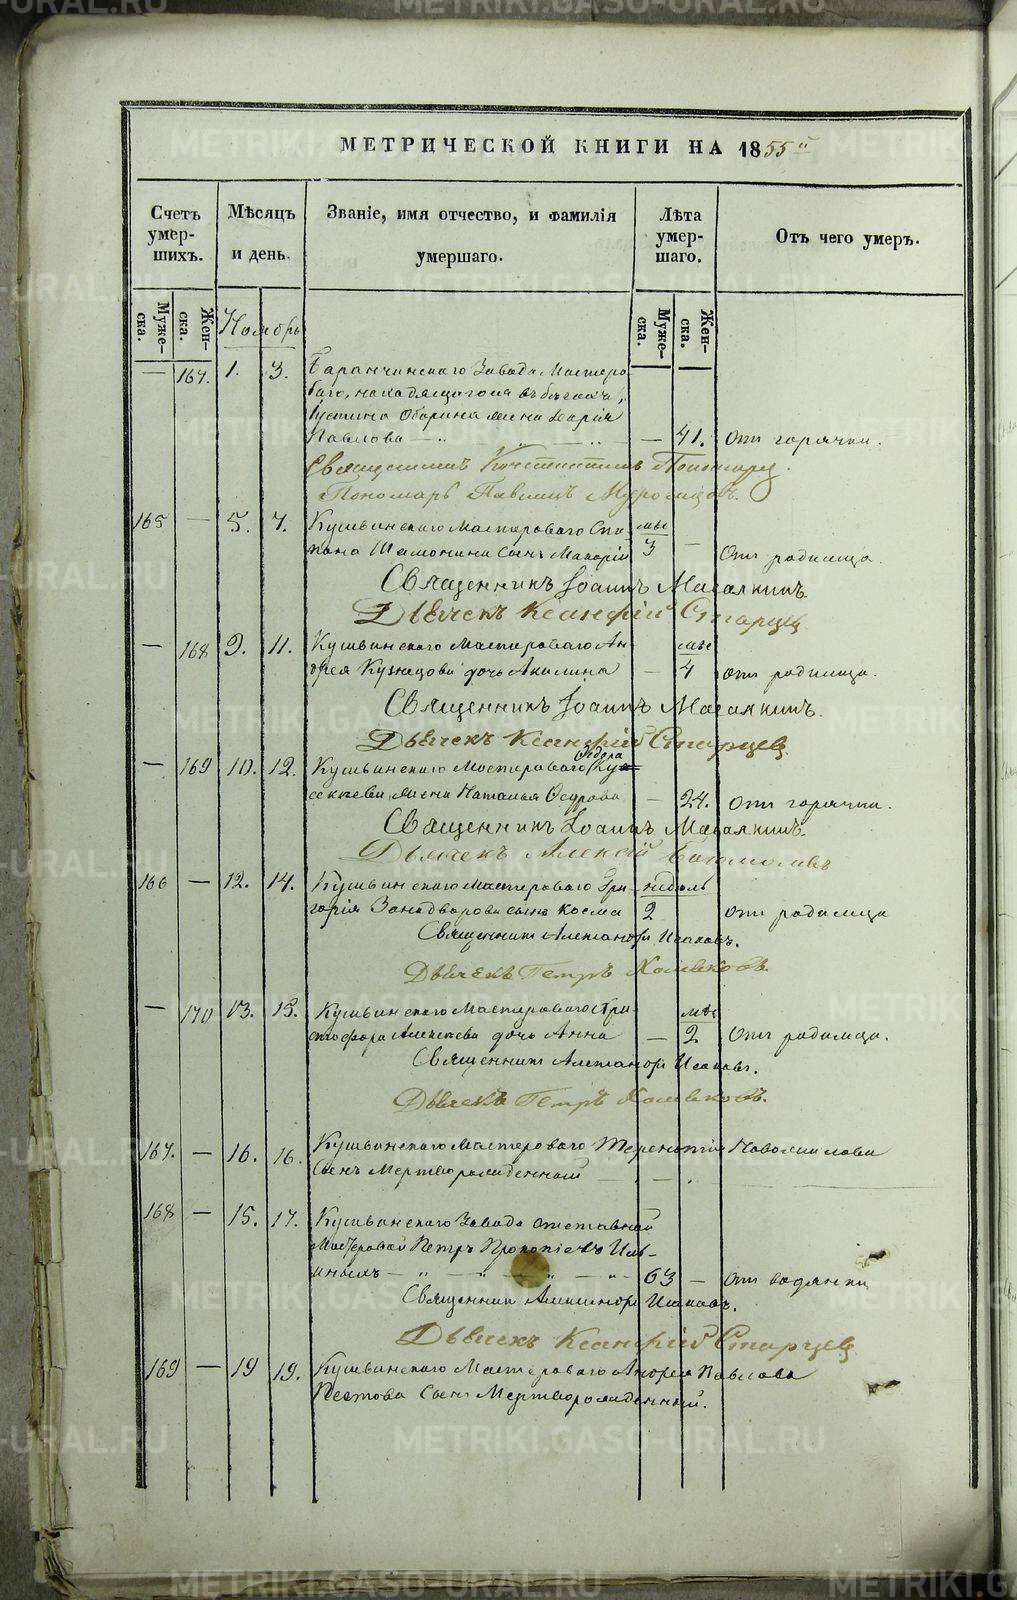 МЕТРИЧЕСКОЙ КНИГИ НА 1855й
Счетъ умер- шихъ.
Мѣсяцъ и день.
Званіе, имя отчество, и фамилія умершаго.
Лѣта умер- шаго.
Отъ чего умеръ.
Муже- ска.
Жен- ска.
Ноябрь
Муже- ска.
Жен- ска.
— 167. 1. 3. Баранчинскаго Завода Мастеро
ваго, находящагося въ бѣгахъ,
Іустина Обарина жена Дарія
Павлова — 41. отъ горячки.
Священникъ Константинъ Пономарев.
Пономарь Павлинъ
165 — 5. 7. Кушвинскаго Мастероваго Сте- мѣс
пана Шамонина сынъ Макарій 3 — отъ родимца.
Священникъ Іоаннъ Масалкинъ.
Дьячекъ Ксанфій Старцев
— 168 9. 11. Кушвинскаго Мастероваго Ан- мѣс
дрея Кузнецова дочь Акилина — 4 отъ родимца.
Священникъ Іоаннъ Масалкинъ.
Дьячекъ Ксанфій Старцев
Ѳедора
— 169 10. 12. Кушвинскаго Мастероваго
жена Наталья Ѳедорова — 24. отъ горячки.
Священникъ Іоаннъ Масалкинъ.
Дьячекъ Алексѣй
166 — 12. 14. Кушвинскаго Мастероваго Гри- недѣль
горія Занадворова сынъ Косма 2 отъ родимца
Священникъ Александръ Исаковъ.
Дьячекъ Петръ Хомяковъ.
— 170 13. 15. Кушвинскаго Мастероваго Хри- мѣс
стофора Алексѣева дочь Анна — 2 отъ родимца.
Священникъ Александръ Исаковъ.
Дьячекъ Петръ Хомяковъ.
167. — 16. 16. Кушвинскаго Мастероваго Терентія Новожилова
сынъ Мертворожденный
168 — 15. 17. Кушвинскаго Завода отставной
Мастеровой Петръ Прокопіевъ Иль-
иныхъ — 63 — отъ водянки
Священник Александръ Исаковъ.
Дьячекъ Ксанфій Старцев
169 — 19 19. Кушвинскаго Мастероваго Андрея Павлова
сынъ Мертворожденный.
METRIKI.GASO-URAL.RU